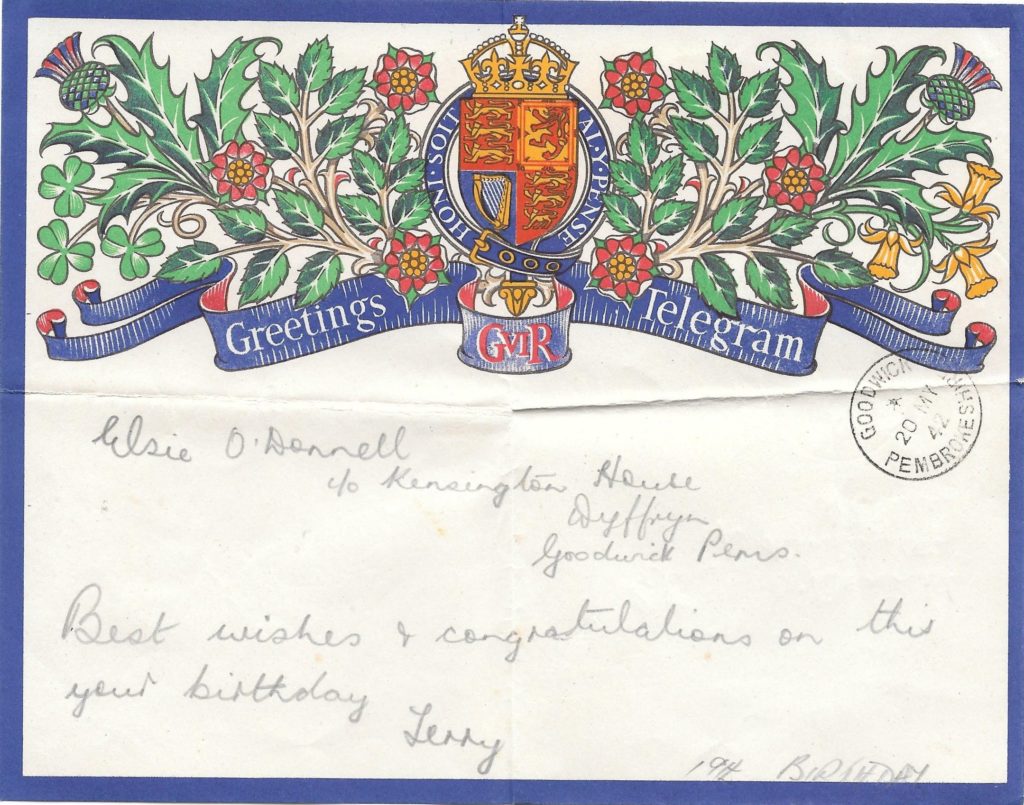 HONI·SOIT
AL·Y·PENSE
Greetings
GVIR
Telegram
GOODWICK
20 MY
42
PEMBROKESHIRE
Elsie O'Donnell
c/o Kensington House
Dyffryn
Goodwick Pems.
Best wishes & congratulations on this
your birthday
Terry
BIRTHDAY